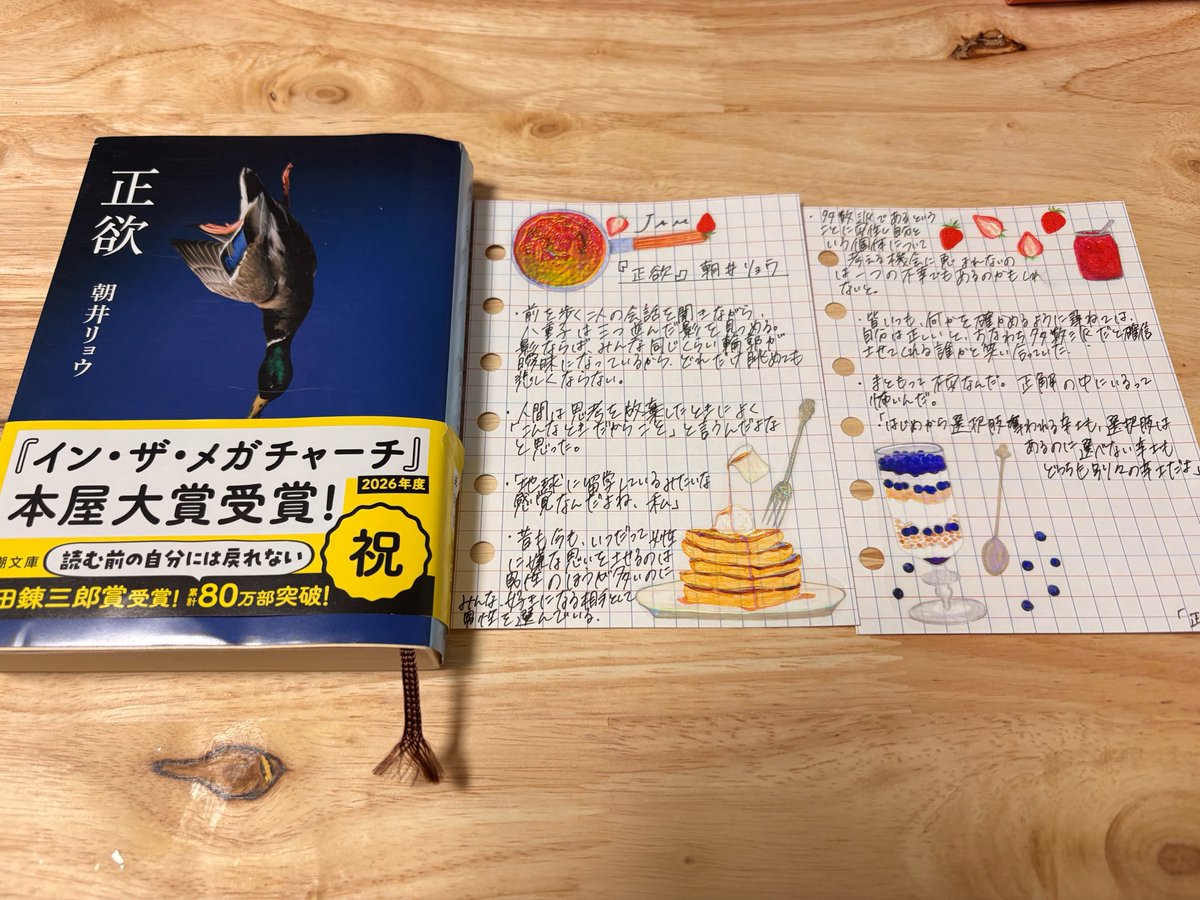 正欲
朝井リョウ
『イン・ザ・メガチャーチ』
2026年度
本屋大賞受賞!
祝
潮文庫
読む前の自分には戻れない
田錬三郎賞受賞!累計80万部突破!
Jam
『正欲』朝井リョウ
・前を歩く二人の会話を聞きながら、
八重子は三つ並んだ影を見つめる。
影ならば、みんな同じくらい輪郭が
曖昧になっているから、どれだけ眺めても
悲しくならない。
・人間は思考を放棄したときによく
「こんなときだからこそ」と言うんだよな
と思った。
・「地球に留学しているみたいな
感覚なんだよね、私」
・昔も何も、いつだって女性
に嫌な思いをさせるのは
男性のほうが多いのに
みんな、好きになる相手として
男性を選んでいる。
・多数派であるという
ことに
自分と
いう個体について
考える機会に恵まれないの
は一つの不幸でもあるのかもしれ
ないと。
・皆いつも、何かを確かめるように訊ねては、
自分は正しい、と、すなわち多数派だと確信
させてくれる誰かと笑い合っていた。
・まともって不安なんだ。正解の中にいるって
怖いんだ。
・「はじめから選択肢奪われる辛さも、選択肢は
あるのに選べない辛さも
どっちも別々の辛さだよ」
「正